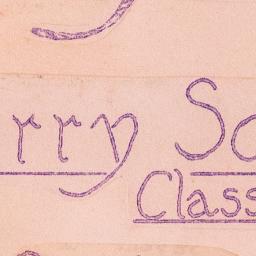 rry S
Class